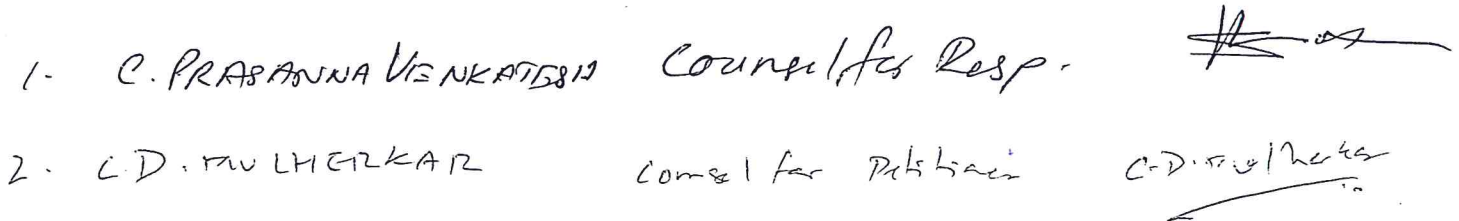 1. C. PRASANNA VENKATESH Counsel for Resp.
2. C.D. MULHERKAR Counsel for Petitioner C.D. Mulherkar